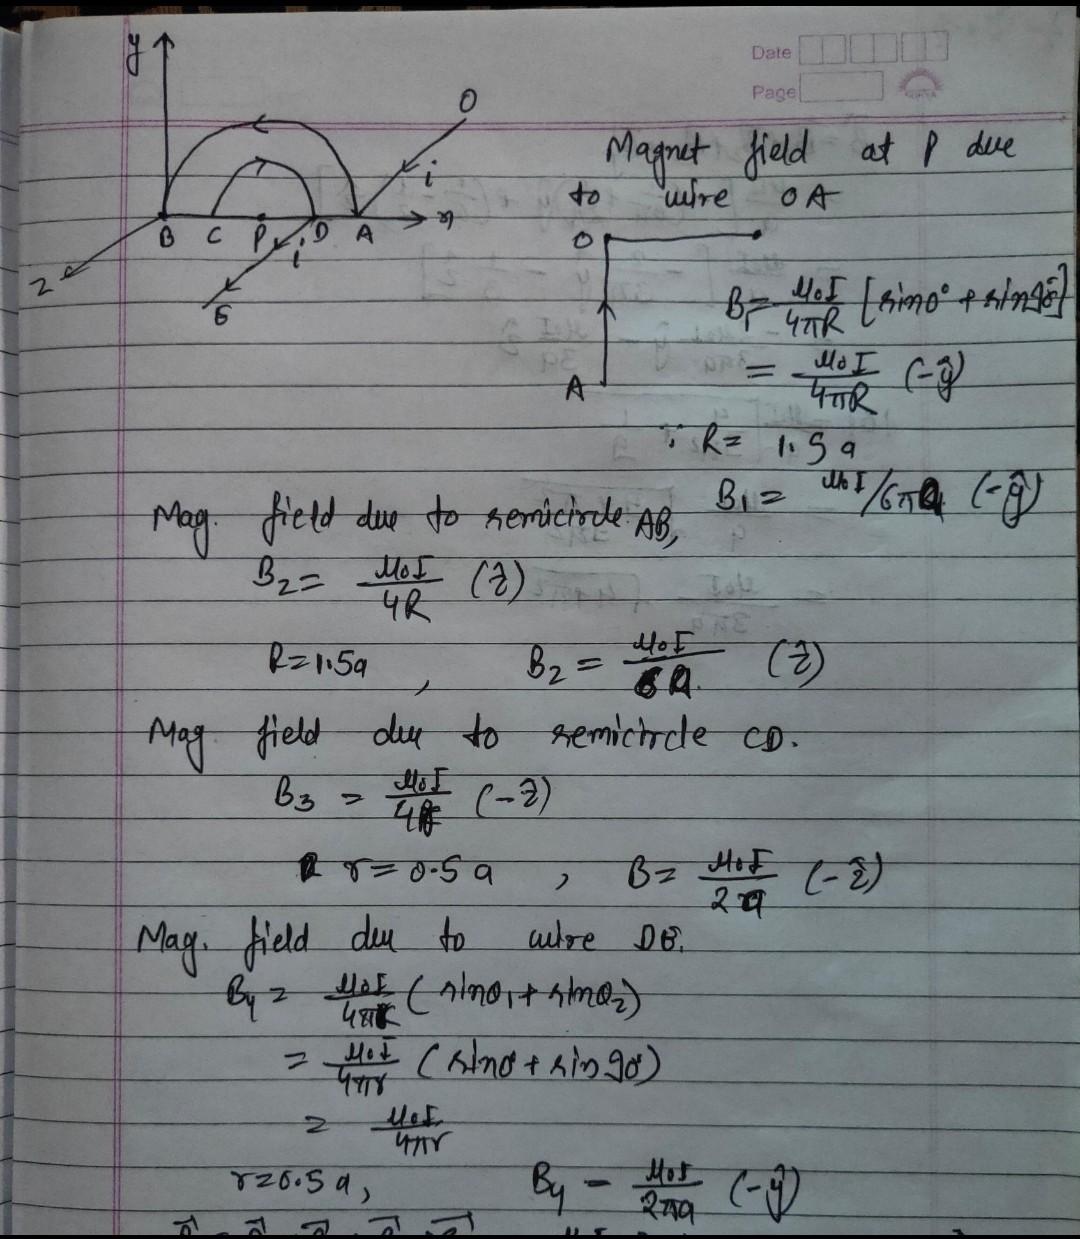 Date
Page
y
O
i
x
B C P D A
i
z
E
Magnet field at P due
to wire OA
O
A
B₁ = μ₀I/4πR [sin0° + sin90°]
= μ₀I/4πR (-ŷ)
∵ R = 1.5 a
B₁ = μ₀I/6πa (-ŷ)
Mag. field due to semicircle AB,
B₂ = μ₀I/4R (ẑ)
R=1.5a , B₂ = μ₀I/6a (ẑ)
Mag field due to semicircle CD.
B₃ = μ₀I/4r (-ẑ)
r = 0.5 a , B = μ₀I/2a (-ẑ)
Mag. field due to wire DE.
B₄ = μ₀I/4πr (sinθ₁ + sinθ₂)
= μ₀I/4πr (sin0° + sin90°)
= μ₀I/4πr
r=0.5 a, B₄ = μ₀I/2πa (-ŷ)